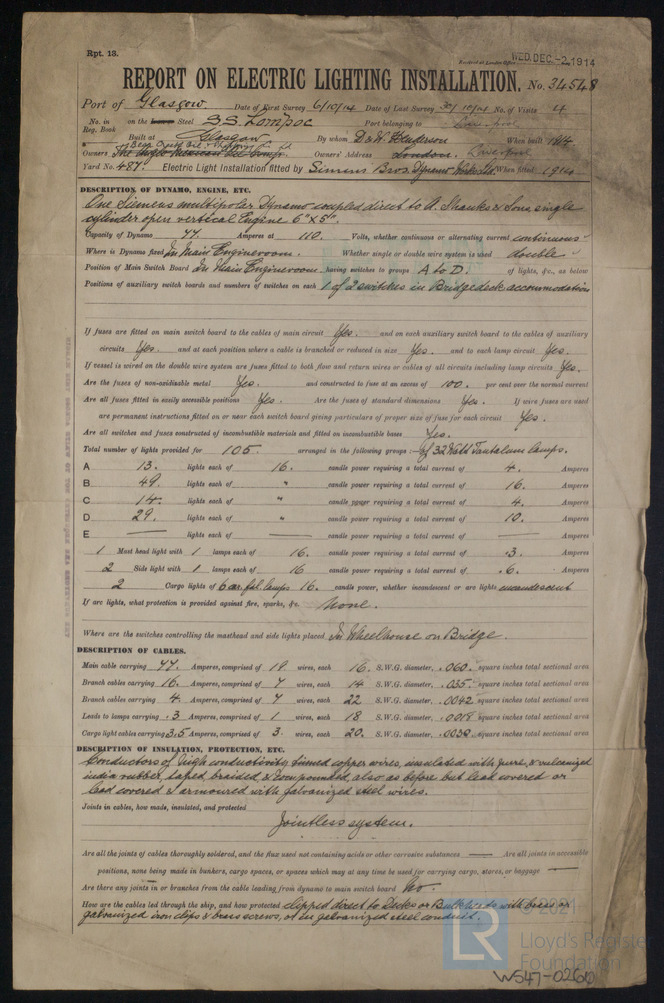 Rpt. 13.
Received at London Office WED. DEC. -2 1914
REPORT ON ELECTRIC LIGHTING INSTALLATION. No. 34548
Port of Glasgow Date of First Survey 6/10/14 Date of Last Survey 30/10/14 No. of Visits 4
No. in Reg. Book on the Iron Steel S.S. Lompoc Port belonging to
Built at Glasgow By whom D & W. Henderson When built 1914
Owners Owners' Address London. Liverpool
Yard No. 487. Electric Light Installation fitted by Siemens Bros. Dynamo Works Ltd. When fitted 1914
DESCRIPTION OF DYNAMO, ENGINE, ETC.
One Siemens multipolar Dynamo coupled direct to A. Shanks & Sons single
cylinder open vertical Engine 6"x5".
Capacity of Dynamo 77 Amperes at 110. Volts, whether continuous or alternating current continuous
Where is Dynamo fixed In Main Engineroom. Whether single or double wire system is used double
Position of Main Switch Board In Main Engineroom. having switches to groups A to D. of lights, &c., as below
Positions of auxiliary switch boards and numbers of switches on each 1 of 2 switches in Bridgedeck accommodation
If fuses are fitted on main switch board to the cables of main circuit Yes. and on each auxiliary switch board to the cables of auxiliary
circuits Yes. and at each position where a cable is branched or reduced in size Yes. and to each lamp circuit Yes.
If vessel is wired on the double wire system are fuses fitted to both flow and return wires or cables of all circuits including lamp circuits Yes.
Are the fuses of non-oxidizable metal Yes. and constructed to fuse at an excess of 100. per cent over the normal current
Are all fuses fitted in easily accessible positions Yes. Are the fuses of standard dimensions Yes. If wire fuses are used
are permanent instructions fitted on or near each switch board giving particulars of proper size of fuse for each circuit Yes.
Are all switches and fuses constructed of incombustible materials and fitted on incombustible bases Yes.
Total number of lights provided for 105. arranged in the following groups :- of 32 Watt Tantalum Lamps.
A 13. lights each of 16. candle power requiring a total current of 4. Amperes
B 49. lights each of " candle power requiring a total current of 16. Amperes
C 14. lights each of " candle power requiring a total current of 4. Amperes
D 29. lights each of " candle power requiring a total current of 10. Amperes
E — lights each of — candle power requiring a total current of — Amperes
1 Mast head light with 1 lamps each of 16. candle power requiring a total current of .3 Amperes
2 Side light with 1 lamps each of 16 candle power requiring a total current of .6. Amperes
2 Cargo lights of 6 car. fil. lamps 16. candle power, whether incandescent or arc lights incandescent
If arc lights, what protection is provided against fire, sparks, &c. None.
Where are the switches controlling the masthead and side lights placed In Wheelhouse on Bridge.
DESCRIPTION OF CABLES.
Main cable carrying 77. Amperes, comprised of 19 wires, each 16. S.W.G. diameter, .060. square inches total sectional area
Branch cables carrying 16. Amperes, comprised of 7 wires, each 14 S.W.G. diameter, .035. square inches total sectional area
Branch cables carrying 4. Amperes, comprised of 7 wires, each 22 S.W.G. diameter, .0042 square inches total sectional area
Leads to lamps carrying .3 Amperes, comprised of 1 wires, each 18 S.W.G. diameter, .0018 square inches total sectional area
Cargo light cables carrying 3.5 Amperes, comprised of 3. wires, each 20. S.W.G. diameter, square inches total sectional area
DESCRIPTION OF INSULATION, PROTECTION, ETC.
Conductors of high conductivity tinned copper wires, insulated with pure, & vulcanized
india rubber, taped braided & compounded, also as before but lead covered or
lead covered & armoured with galvanized steel wires.
Joints in cables, how made, insulated, and protected
Jointless system.
Are all the joints of cables thoroughly soldered, and the flux used not containing acids or other corrosive substances — Are all joints in accessible
positions, none being made in bunkers, cargo spaces, or spaces which may at any time be used for carrying cargo, stores, or baggage —
Are there any joints in or branches from the cable leading from dynamo to main switch board No.
How are the cables led through the ship, and how protected Clipped direct to Decks or Bulkheads with brass or
galvanized iron clips & brass screws, or in galvanized steel conduit.
© 2021
LR Lloyd's Register
Foundation
W547-0260